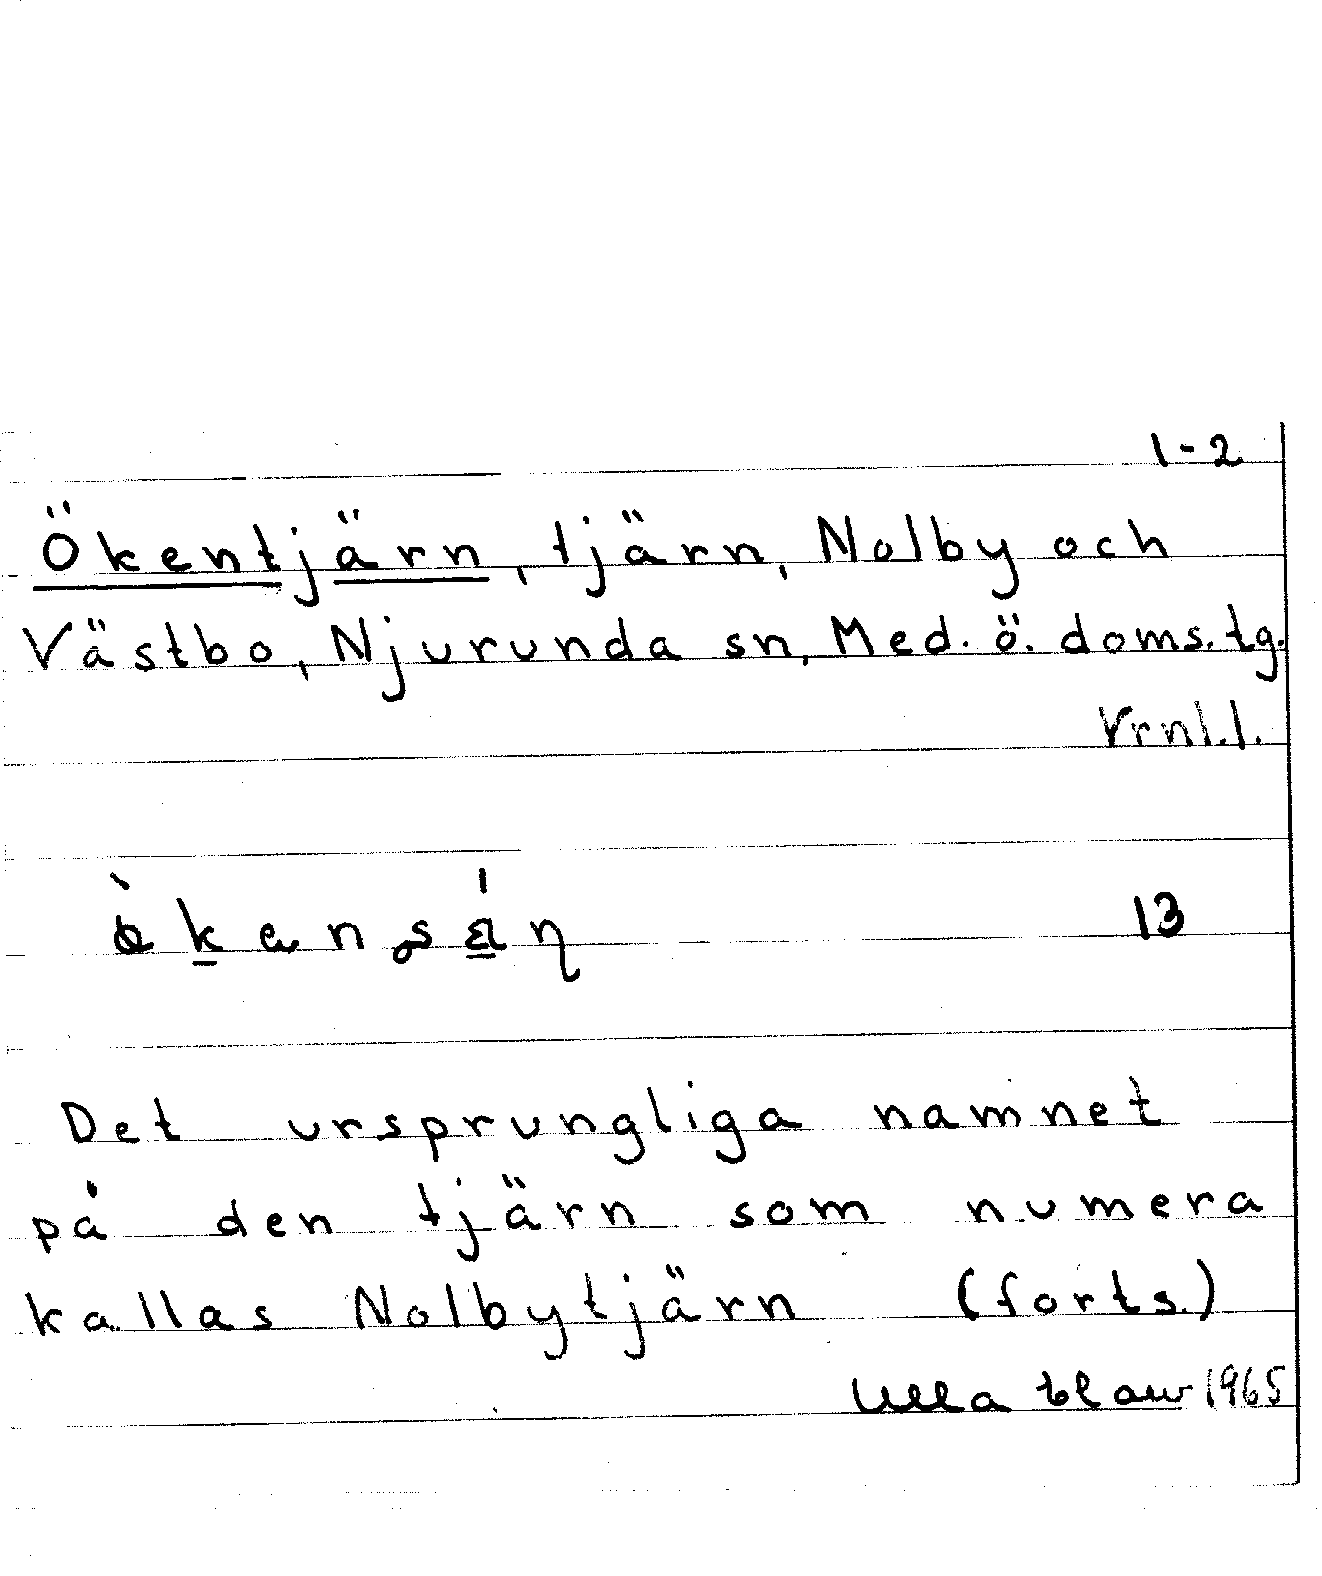 1-2
Ökentjärn, tjärn, Nolby och
Västbo, Njurunda sn, Med. ö. doms. tg.
Vrnl.l.
13
Det ursprungliga namnet
på den tjärn som numera
kallas Nolbytjärn (forts.)
Ulla 1965